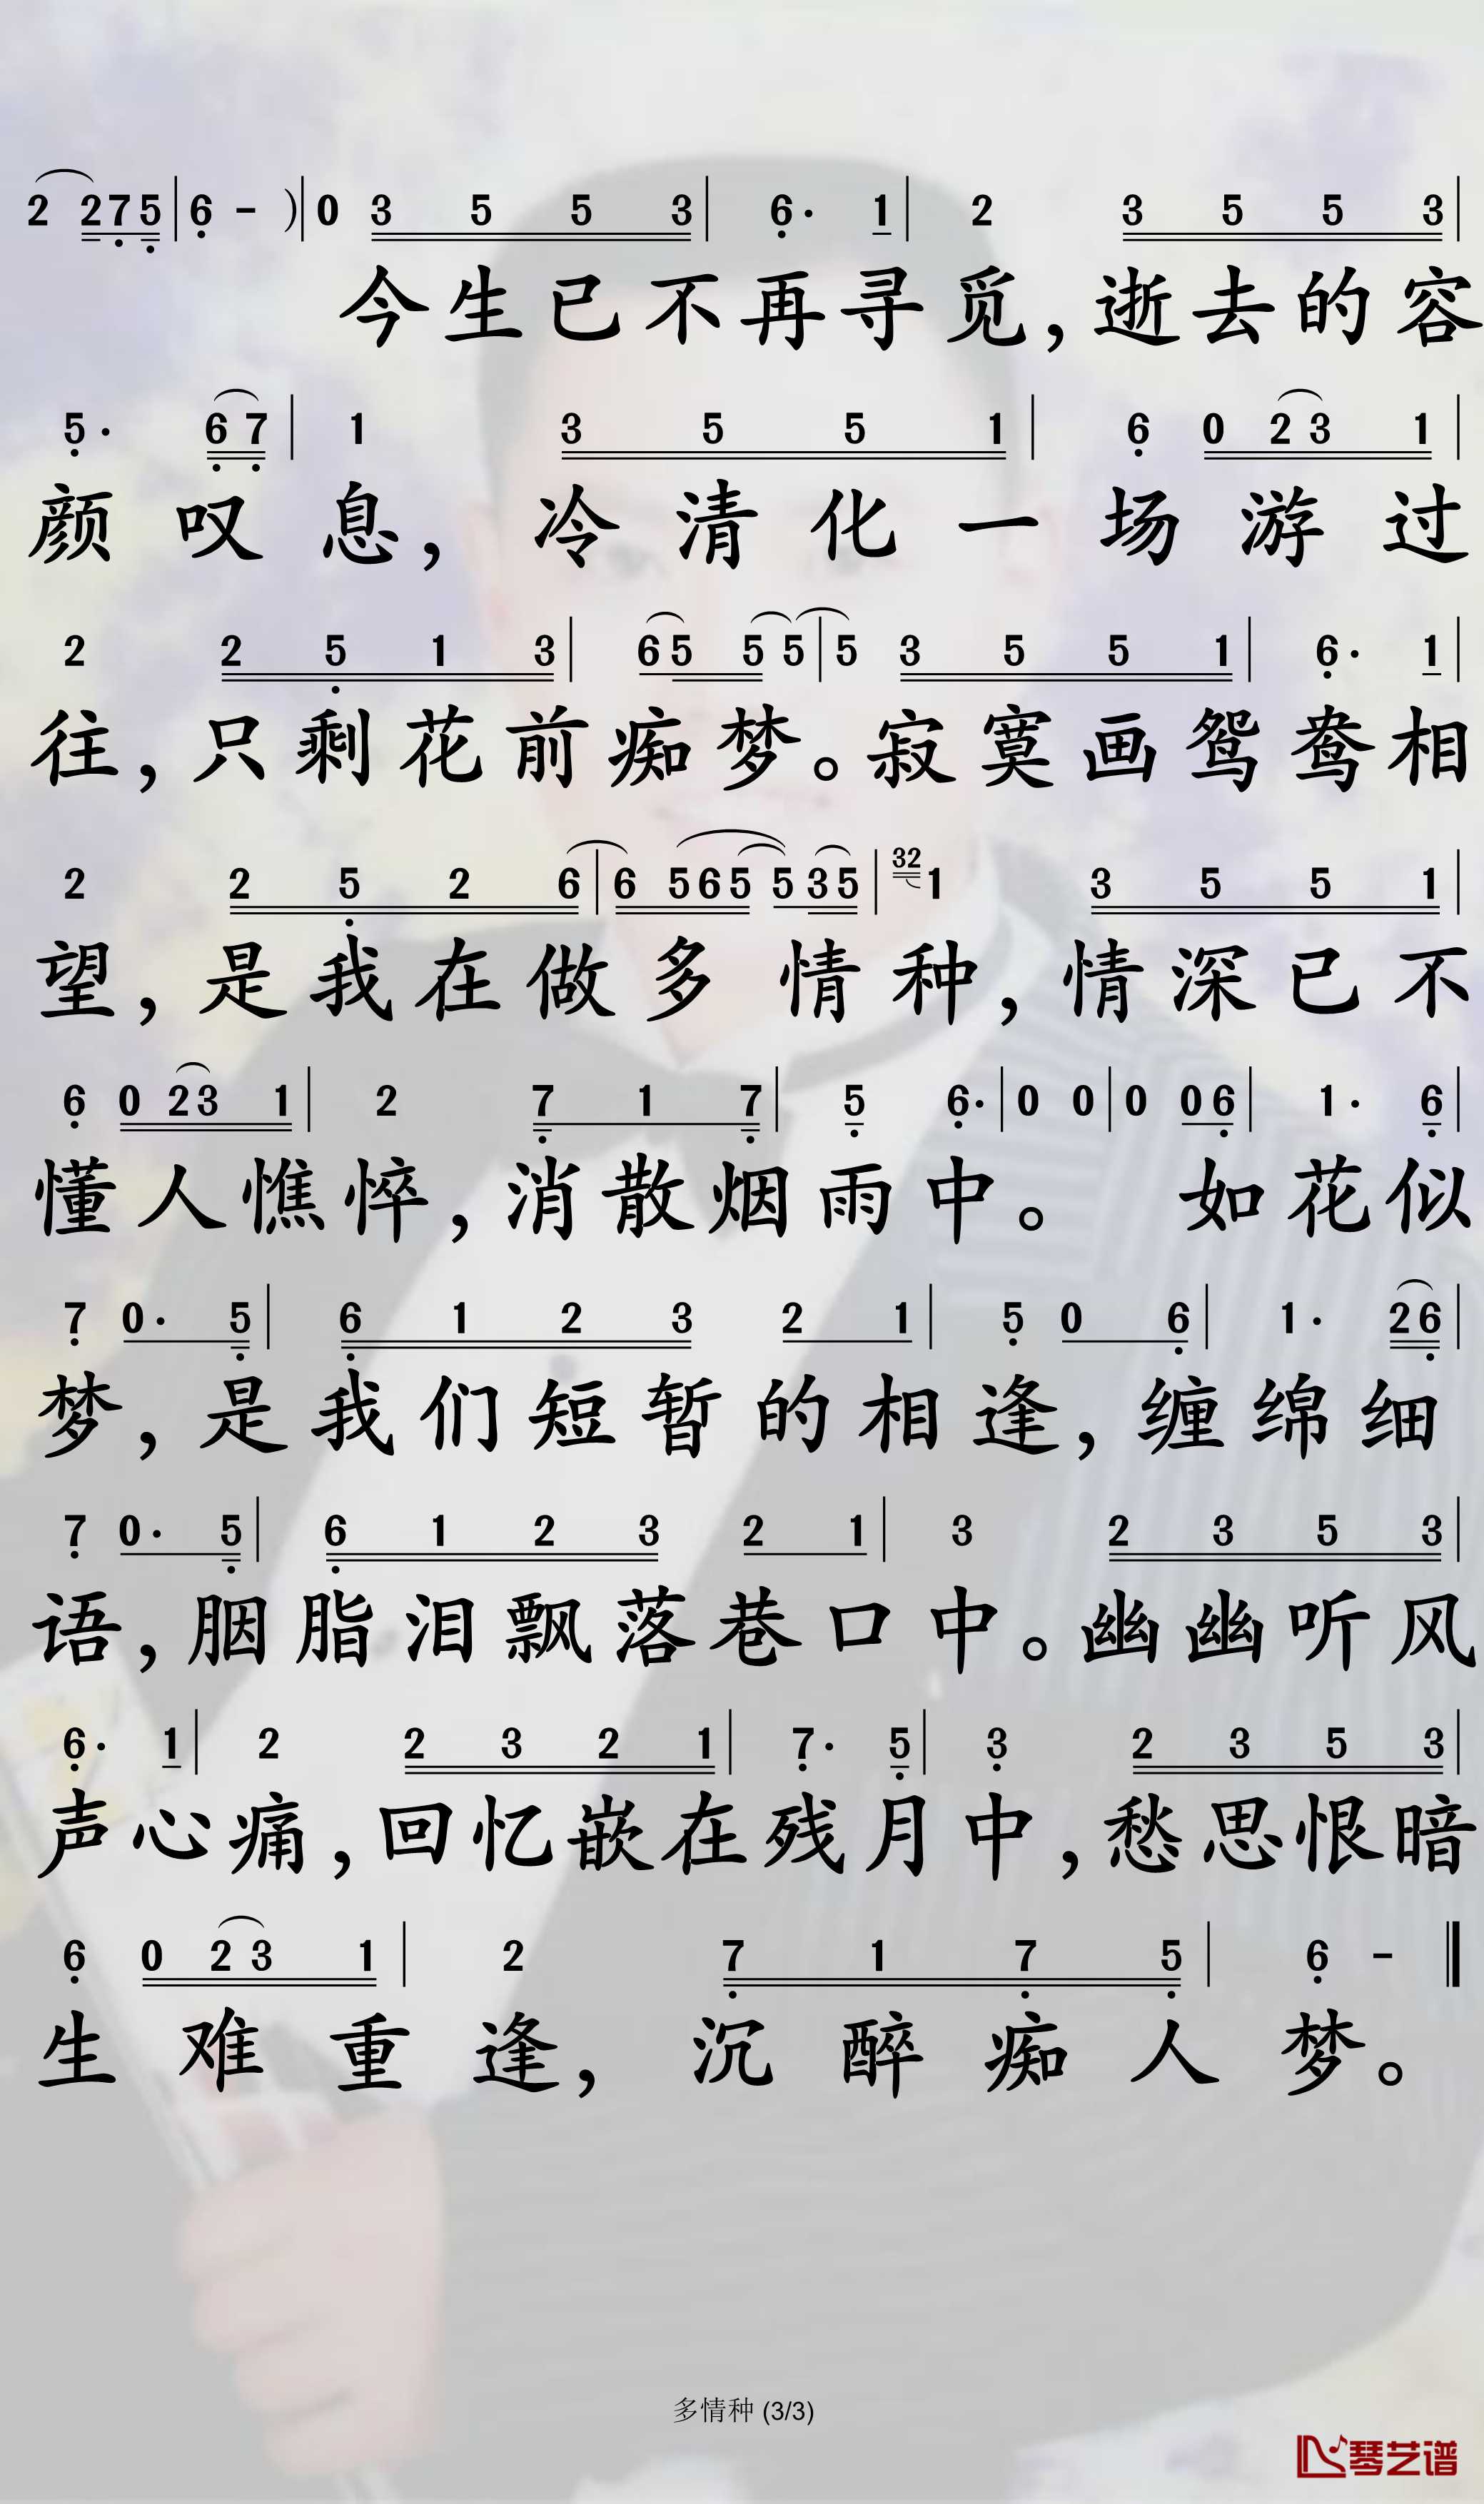 2 2 7 5 | 6 - ) | 0 3 5 5 3 | 6· 1 | 2 3 5 5 3 |
今生已不再寻觅，逝去的容
5· 6 7 | 1 3 5 5 1 | 6 0 2 3 1 |
颜叹息，冷清化一场游过
2 2 5 1 3 | 6 5 5 5 | 5 3 5 5 1 | 6· 1 |
往，只剩花前痴梦。寂寞画鸳鸯相
2 2 5 2 6 | 6 5 6 5 5 3 5 | 32 1 3 5 5 1 |
望，是我在做多情种，情深已不
6 0 2 3 1 | 2 7 1 7 | 5 6· | 0 0 | 0 0 6 | 1· 6 |
懂人憔悴，消散烟雨中。如花似
7 0· 5 | 6 1 2 3 2 1 | 5 0 6 | 1· 2 6 |
梦，是我们短暂的相逢，缠绵细
7 0· 5 | 6 1 2 3 2 1 | 3 2 3 5 3 |
语，胭脂泪飘落巷口中。幽幽听风
6· 1 | 2 2 3 2 1 | 7· 5 | 3 2 3 5 3 |
声心痛，回忆嵌在残月中，愁思恨暗
6 0 2 3 1 | 2 7 1 7 5 | 6 - ‖
生难重逢，沉醉痴人梦。
多情种 (3/3)
琴艺谱